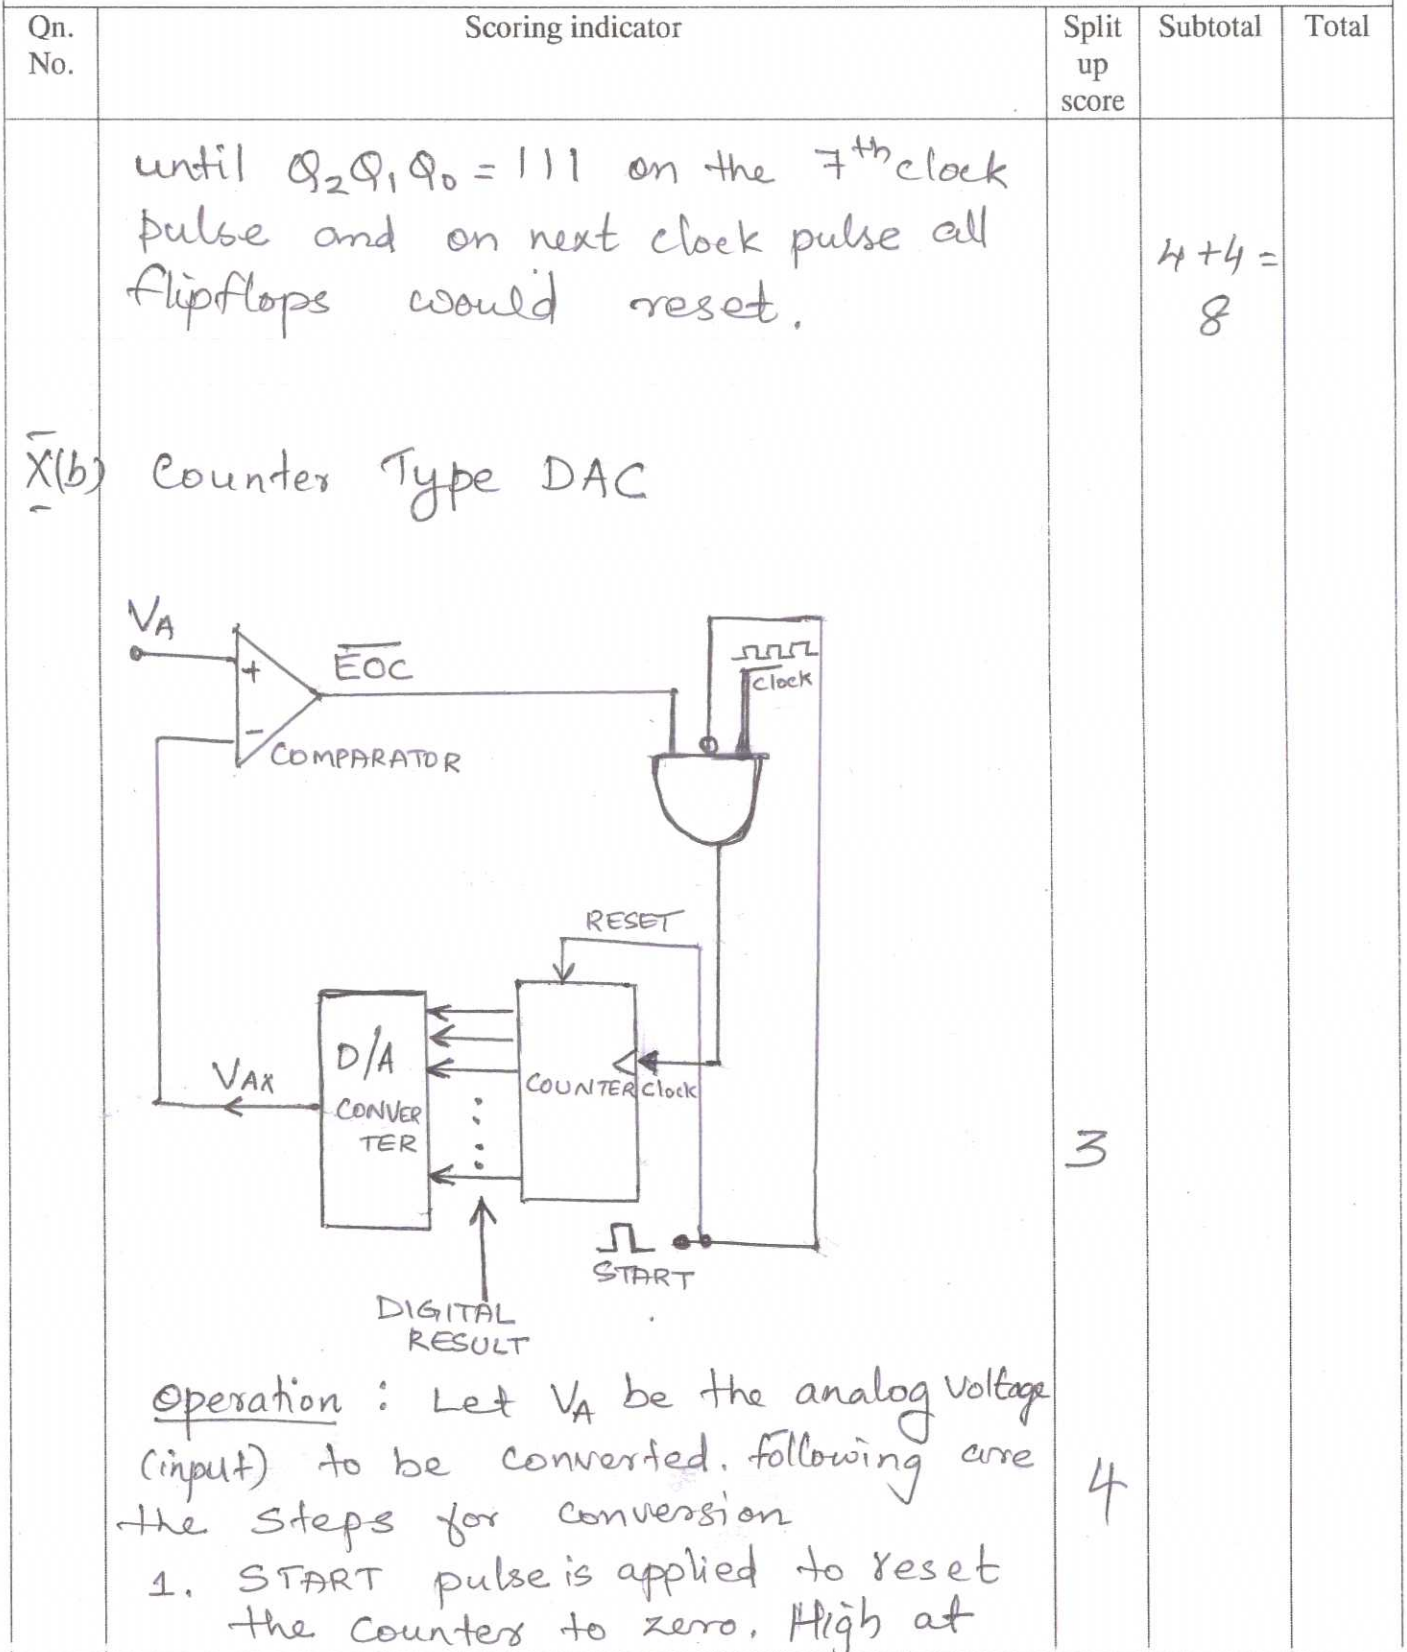 Qn. No.
Scoring indicator
Split up score
Subtotal
Total
until Q₂Q₁Q₀ = 111 on the 7th clock
pulse and on next clock pulse all
flipflops would reset.
4+4=
8
X(b) Counter Type DAC
VA
+
EOC
-
COMPARATOR
Clock
RESET
D/A
CONVER
TER
VAX
COUNTER
Clock
3
START
DIGITAL
RESULT
Operation : Let VA be the analog voltage
(input) to be converted. following are
4
the steps for conversion
1. START pulse is applied to reset
the counter to zero. High at